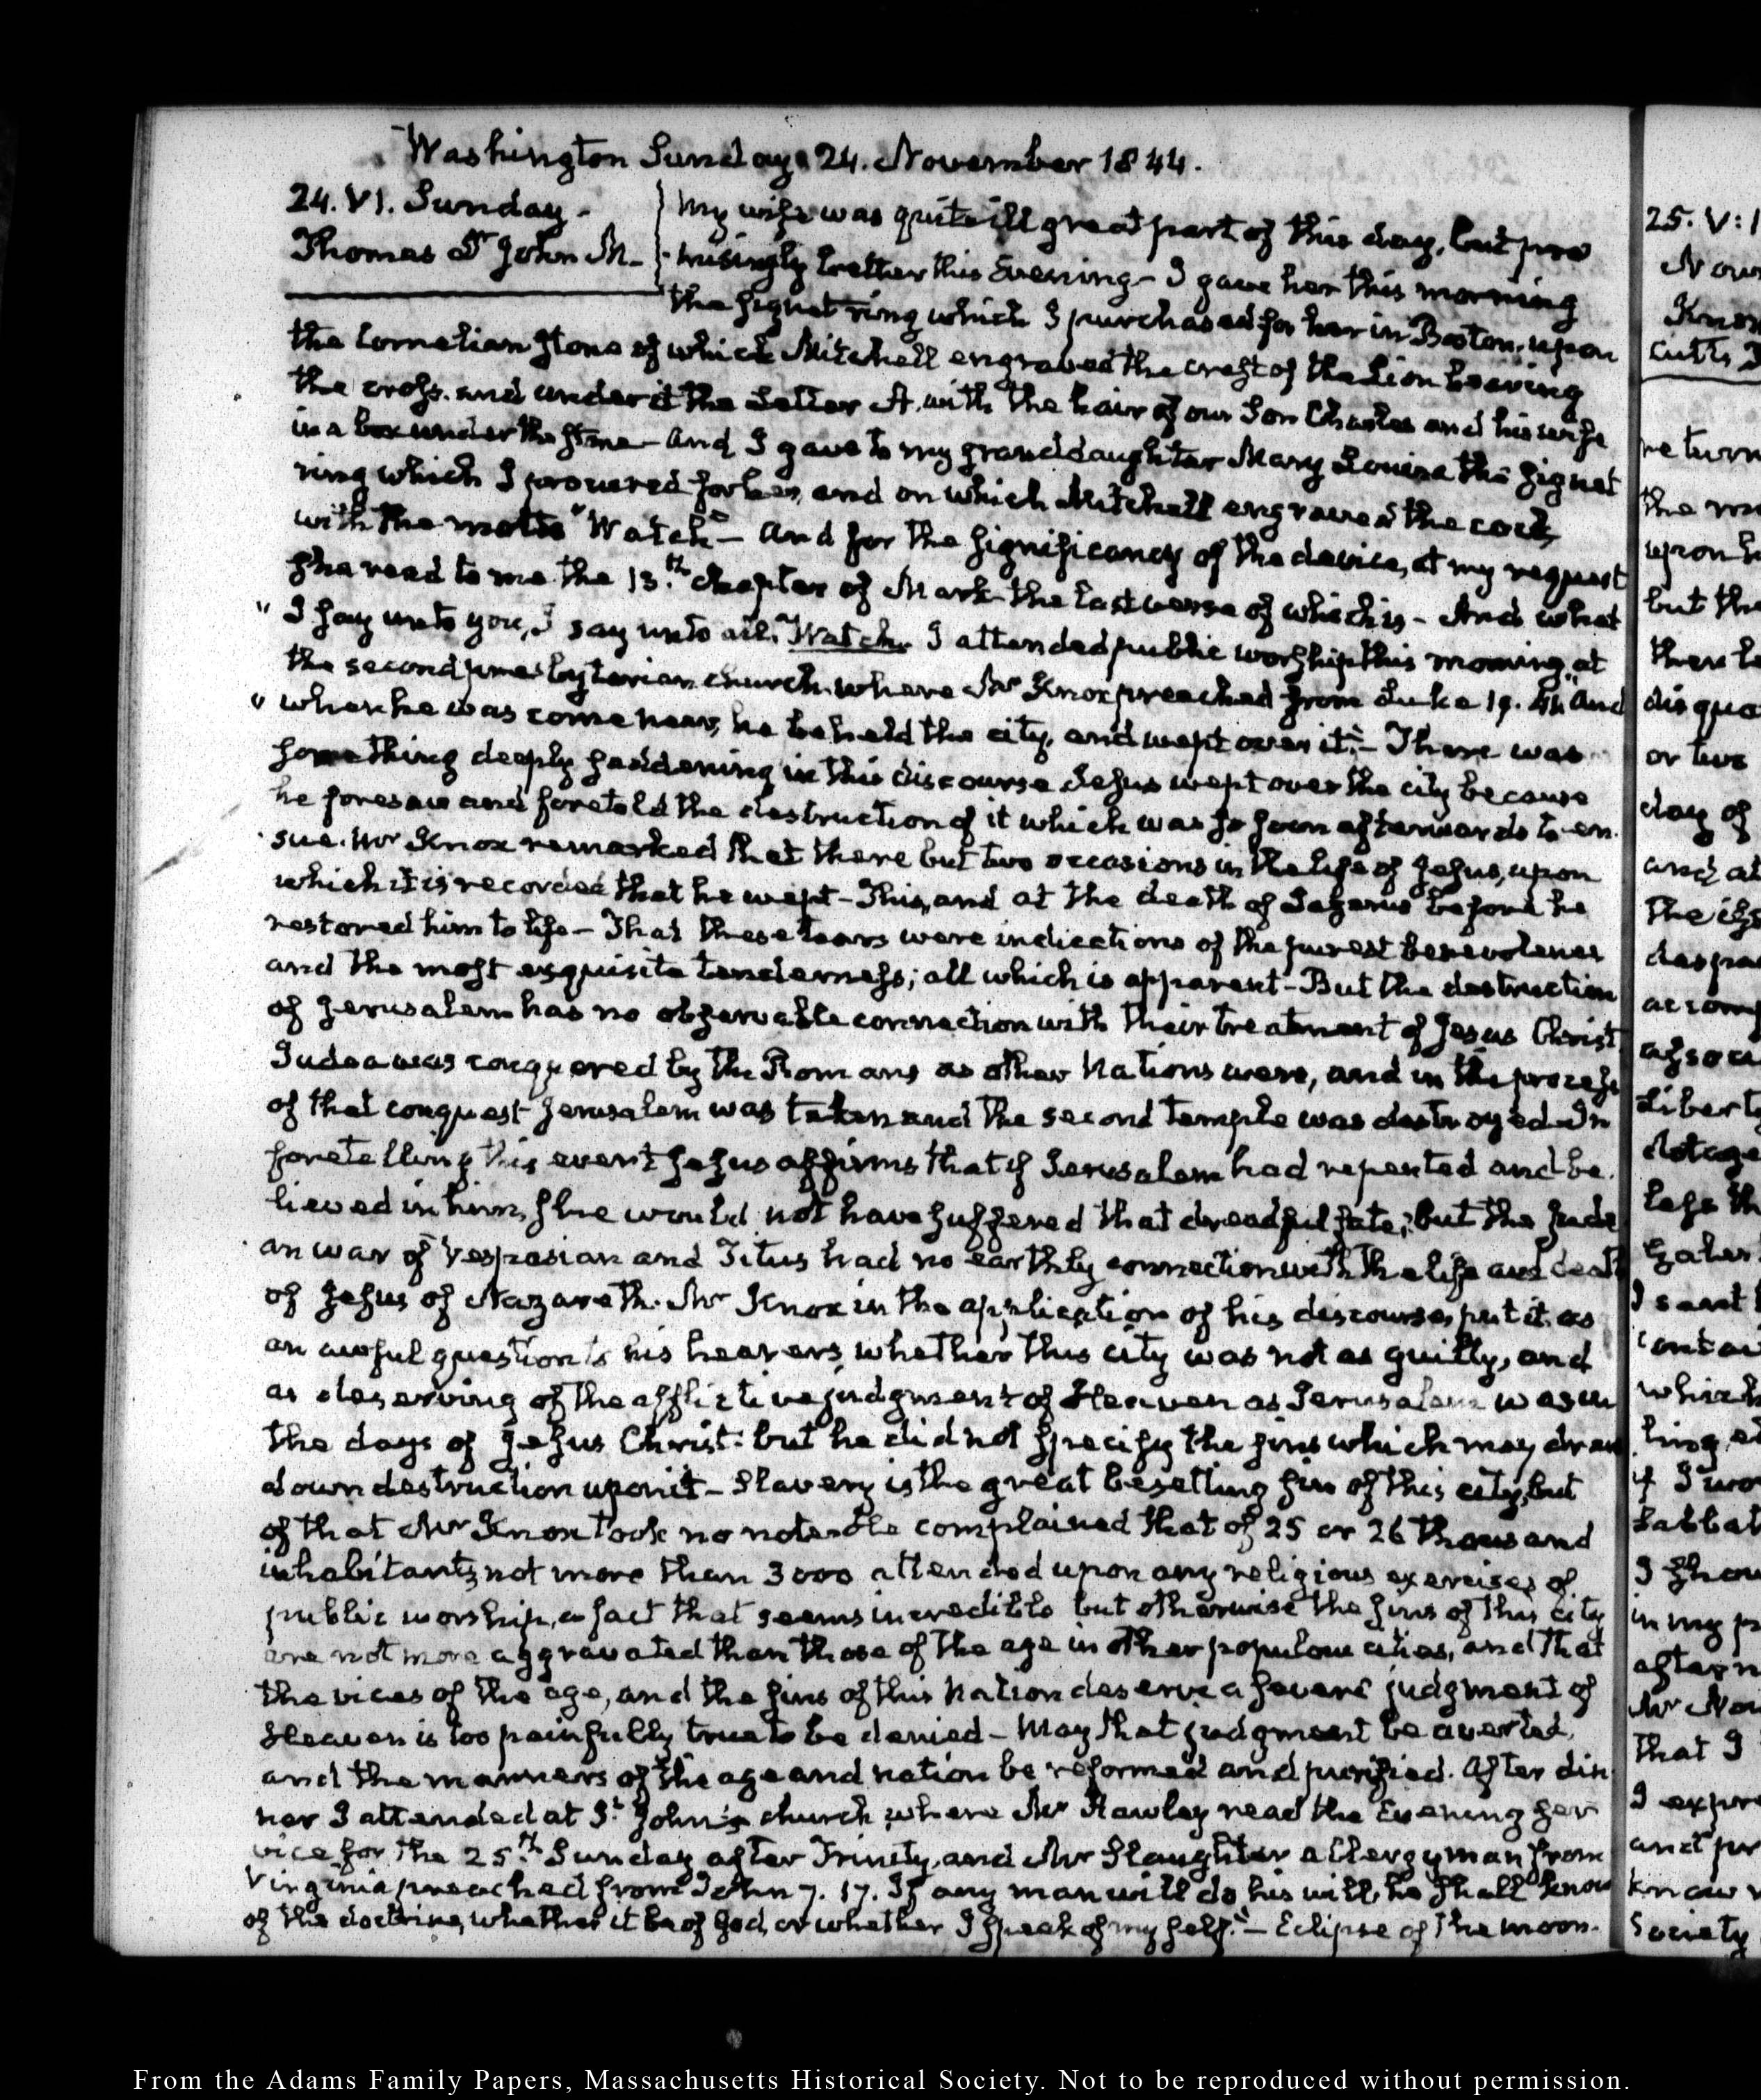 Washington Sunday 24. November 1844.
24. VI. Sunday.
Thomas St John M.
My wife was quite ill great part of this day, but pro
misingly better this Evening — I gave her this morning
the signet ring which I purchased for her in Boston, upon
the Cornelian stone of which Mitchell engraved the crest of the Lion bearing
the cross. and under it the Letter A. with the hair of our Son Charles and his wife
in a box under the stone — and I gave to my granddaughter Mary Louisa the signet
ring which I procured for her, and on which Mitchell engraved the cock,
with the motto "Watch" — and for the significancy of the device, at my request
she read to me the 13.th chapter of Mark the last verse of which is — And what
" I say unto you, I say unto all, "Watch. I attended public worship this morning, at
the second presbyterian church where Mr Knox preached from Luke 19. 41. "And
" when he was come near, he beheld the city, and wept over it." — There was
something deeply saddening in this discourse Jesus wept over the city because
he foresaw and foretold the destruction of it which was so soon afterwards to en
sue. Mr Knox remarked that there but two occasions in the life of Jesus, upon
which it is recorded that he wept — This, and at the death of Lazarus before he
restored him to life — That these tears were indications of the purest benevolence
and the most exquisite tenderness; all which is apparent — But the destruction
of Jerusalem has no observable connection with their treatment of Jesus Christ
Judea was conquered by the Romans as other Nations were, and in the process
of that conquest Jerusalem was taken and the second temple was destroyed. In
foretelling this event Jesus affirms that if Jerusalem had repented and be
lieved in him, she would not have suffered that dreadful fate; but the Jude
an war of Vespasian and Titus had no earthly connection with the life and death
of Jesus of Nazareth. Mr Knox in the application of his discourse, put it as
an awful question to his hearers, whether this city was not as guilty, and
as deserving of the afflictive judgment of Heaven as Jerusalem was in
the days of Jesus Christ: but he did not specify the sins which may draw
down destruction upon it — Slavery is the great besetting sin of this city, but
of that Mr Knox took no note. He complained that of 25 or 26 thousand
inhabitants, not more than 3000 attended upon any religious exercises of
public worship, a fact that seems incredible but otherwise the sins of this city
are not more aggravated than those of the age in other populous cities, and that
the vices of the age, and the sins of this Nation deserve a severe judgment of
Heaven is too painfully true to be denied — May that judgment be averted,
and the manners of the age and nation be reformed and purified. After din
ner I attended at St John's church, where Mr Hawley read the Evening ser
vice for the 25.th Sunday after Trinity, and Mr Slaughter a Clergyman from
Virginia preached from John 7. 17. If any man will do his will, he shall know
of the doctrine, whether it be of God, or whether I speak of my self." — Eclipse of the moon.
25. V:
Cutts
the
upon
but the
or two
day of
and
which
I
in my
That I
and
know
Society
From the Adams Family Papers, Massachusetts Historical Society. Not to be reproduced without permission.